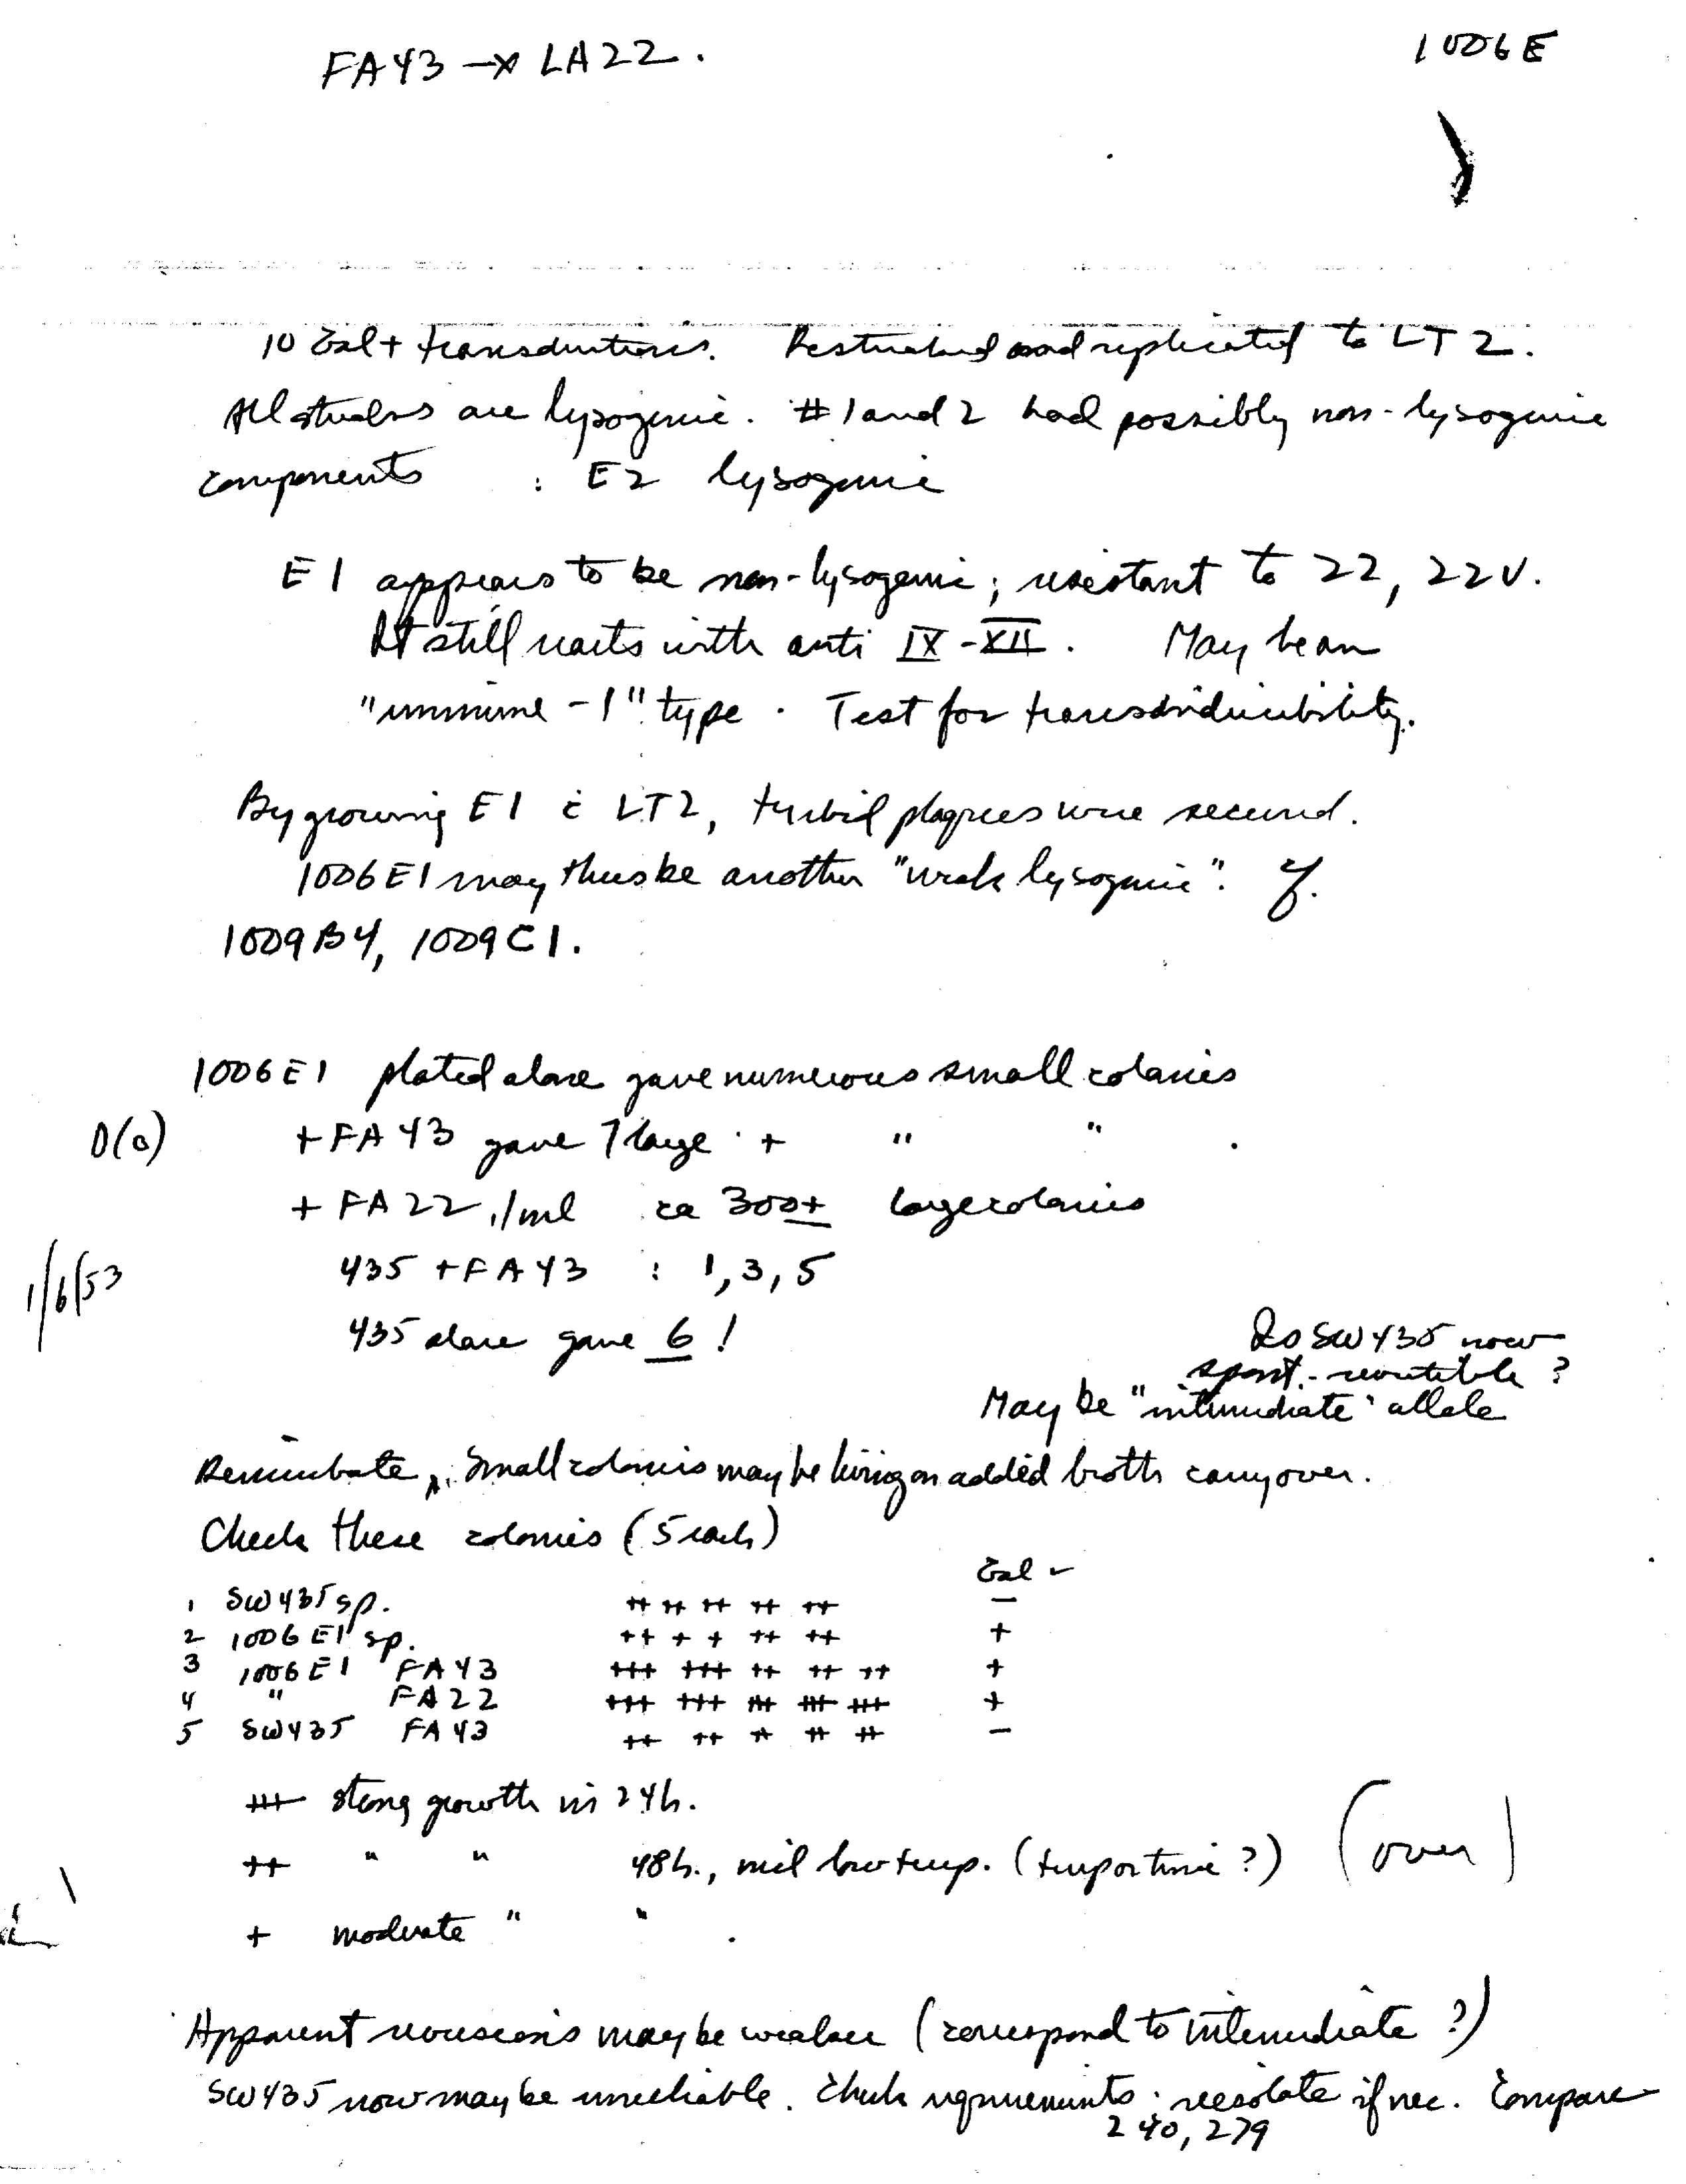 FA43 —x LA22.
1006E
10 Gal+ transductions. Restreaked and replicated to LT2.
All streaks are lysogenic. #1 and 2 had possibly non-lysogenic
components : E2 lysogenic
E1 appears to be non-lysogenic; resistant to 22, 22V.
It still reacts with anti IX-XII. May be an
"immune-1" type. Test for transducibility.
By growing E1 c̄ LT2, turbid plaques were secured.
1006E1 may thus be another "weak lysogenic". Cf.
1009B4, 1009C1.
1006E1 plated alone gave numerous small colonies
D(0) +FA43 gave 7 large + " " .
+ FA22 .1/ml ca 300± large colonies
1/6/53
435 + FA43 : 1, 3, 5
435 alone gave 6!
Is SW435 now
spont.-revertible?
May be "intermediate" allele
Reincubate. Small colonies may be living on added broth carryover.
Check these colonies (5 each)
Gal
1 SW435 sp. ++ ++ ++ ++ ++ −
2 1006E1 sp. ++ + + ++ ++ +
3 1006E1 FA43 +++ +++ ++ ++ ++ +
4 " FA22 +++ +++ +++ +++ +++ +
5 SW435 FA43 ++ ++ ++ ++ −
+++ strong growth in 24h.
++ " " 48h., incl low temp. (temp or time?) (over)
+ moderate " " .
Apparent reversions may be weaker (correspond to intermediate?)
SW435 now may be unreliable. Check requirements; reisolate if nec. Compare
240, 279